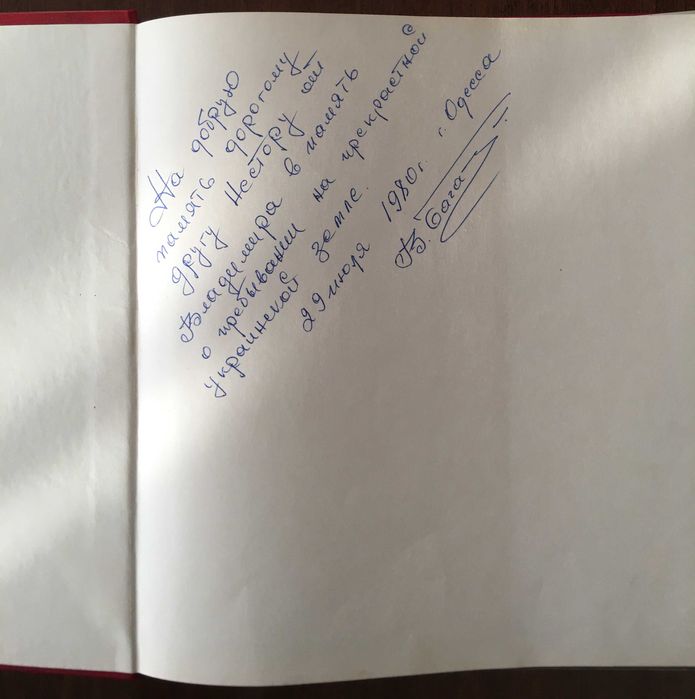 На добрую
память дорогому
другу Нестору от
Владимира в память
о пребывании на прекрастной
украинской земле.
29 июля 1980г. г. Одесса